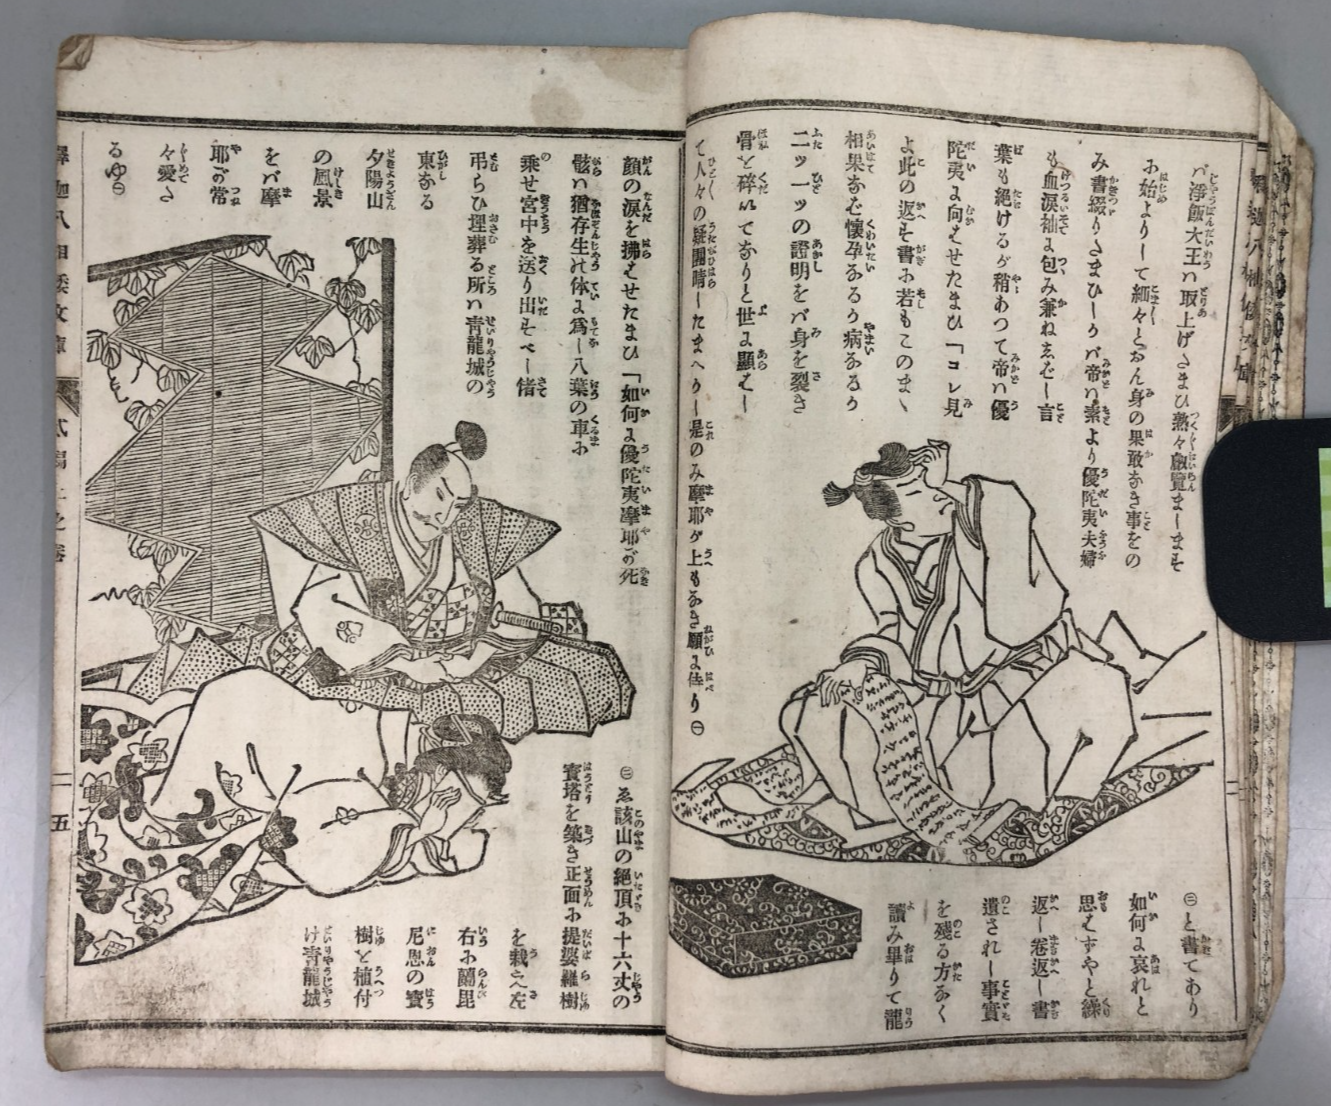 バ淨飯大王ハ取上げたまひ熟々叡覽ましませ
バ始よりして細々とおん身の果敢なき事をの
み書綴りたまひしかバ帝ハ素より優陀夷夫婦
も血涙袖に包み兼ねまゐし言
葉も絶けるが稍あつて帝ハ優
陀夷に向はせたまひ「コレ見
よ此の返そ書に若もこのまゝ
相果なむ懷孕なるか病なるか
二ッ一ッの證明をバ身を裂き
骨を碎いてなりと世に顯はし
て人々の疑團晴したまへかし是のみ摩耶が上もなき願に侍り㊀
㊁と書てあり
如何に哀れと
思はすやと繰
返し卷返し書
遺されし事實
を殘る方なく
讀み畢りて龍
顔の涙を拂はせたまひ「如何に優陀夷摩耶が死
骸ハ猶存生の体に爲し八葉の車に
乘せ宮中を送り出すべし偖
弔らひ埋葬る所ハ青龍城の
東なる
夕陽山
の風景
をバ摩
耶が常
々愛さ
るゆ㊁
㊂ゑ該山の絶頂に十六丈の
寳塔を築き正面に提婆羅樹
を栽へ左
右に藺毘
尼恩の寳
樹を植付
け青龍城
釋迦八相倭文庫
五